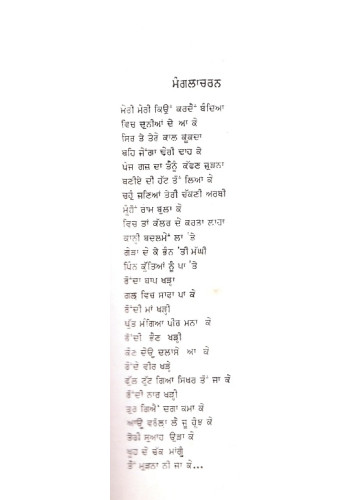 ਮੰਗਲਾਚਰਨ
ਮੇਰੀ ਮੇਰੀ ਕਿਉਂ ਕਰਦੈਂ ਬੰਦਿਆ
ਵਿਚ ਦੁਨੀਆਂ ਦੇ ਆ ਕੇ
ਸਿਰ ਤੇ ਤੇਰੇ ਕਾਲ ਕੂਕਦਾ
ਬਹਿ ਜੇਂਗਾ ਢੇਰੀ ਢਾਹ ਕੇ
ਪੰਜ ਗਜ਼ ਦਾ ਤੈਨੂੰ ਕੱਫਣ ਜੁੜਨਾ
ਬਣੀਏ ਦੀ ਹੱਟ ਤੋਂ ਲਿਆ ਕੇ
ਚਹੁੰ ਜਣਿਆਂ ਤੇਰੀ ਚੱਕਣੀ ਅਰਥੀ
ਮੂੰਹੋਂ ਰਾਮ ਬੁਲਾ ਕੇ
ਵਿਚ ਤਾਂ ਕੱਲਰ ਦੇ ਕਰਤਾ ਲਾਹਾ
ਕਾਨੀ ਬਦਲਮੇਂ ਲਾ 'ਤੇ
ਗੇੜਾ ਦੇ ਕੇ ਭੰਨ 'ਤੀ ਮੱਘੀ
ਪਿੰਨ ਕੁੱਤਿਆਂ ਨੂੰ ਪਾ 'ਤੇ
ਰੋਂਦਾ ਬਾਪ ਖੜ੍ਹਾ
ਗਲ ਵਿਚ ਸਾਫਾ ਪਾ ਕੇ
ਰੋਂਦੀ ਮਾਂ ਖੜ੍ਹੀ
ਪੁੱਤ ਮੰਗਿਆ ਪੀਰ ਮਨਾ ਕੇ
ਰੋਂਦੀ ਭੈਣ ਖੜ੍ਹੀ
ਕੌਣ ਦੇਊ ਦਲਾਸੇ ਆ ਕੇ
ਰੋਂਦੇ ਵੀਰ ਖੜ੍ਹੇ
ਫੁੱਲ ਟੁੱਟ ਗਿਆ ਸਿਖਰ ਤੋਂ ਜਾ ਕੇ
ਰੋਂਦੀ ਨਾਰ ਖੜ੍ਹੀ
ਤੁਰ ਗਿਐਂ ਦਗਾ ਕਮਾ ਕੇ
ਆਊ ਵਰੋਲਾ ਲੈ ਜੂ ਹੂੰਝ ਕੇ
ਤੇਰੀ ਸੁਆਹ ਉੜਾ ਕੇ
ਖੂਹ ਦੇ ਚੱਕ ਮਾਂਗੂੰ
ਤੈਂ ਮੁੜਨਾ ਨੀ ਜਾ ਕੇ...